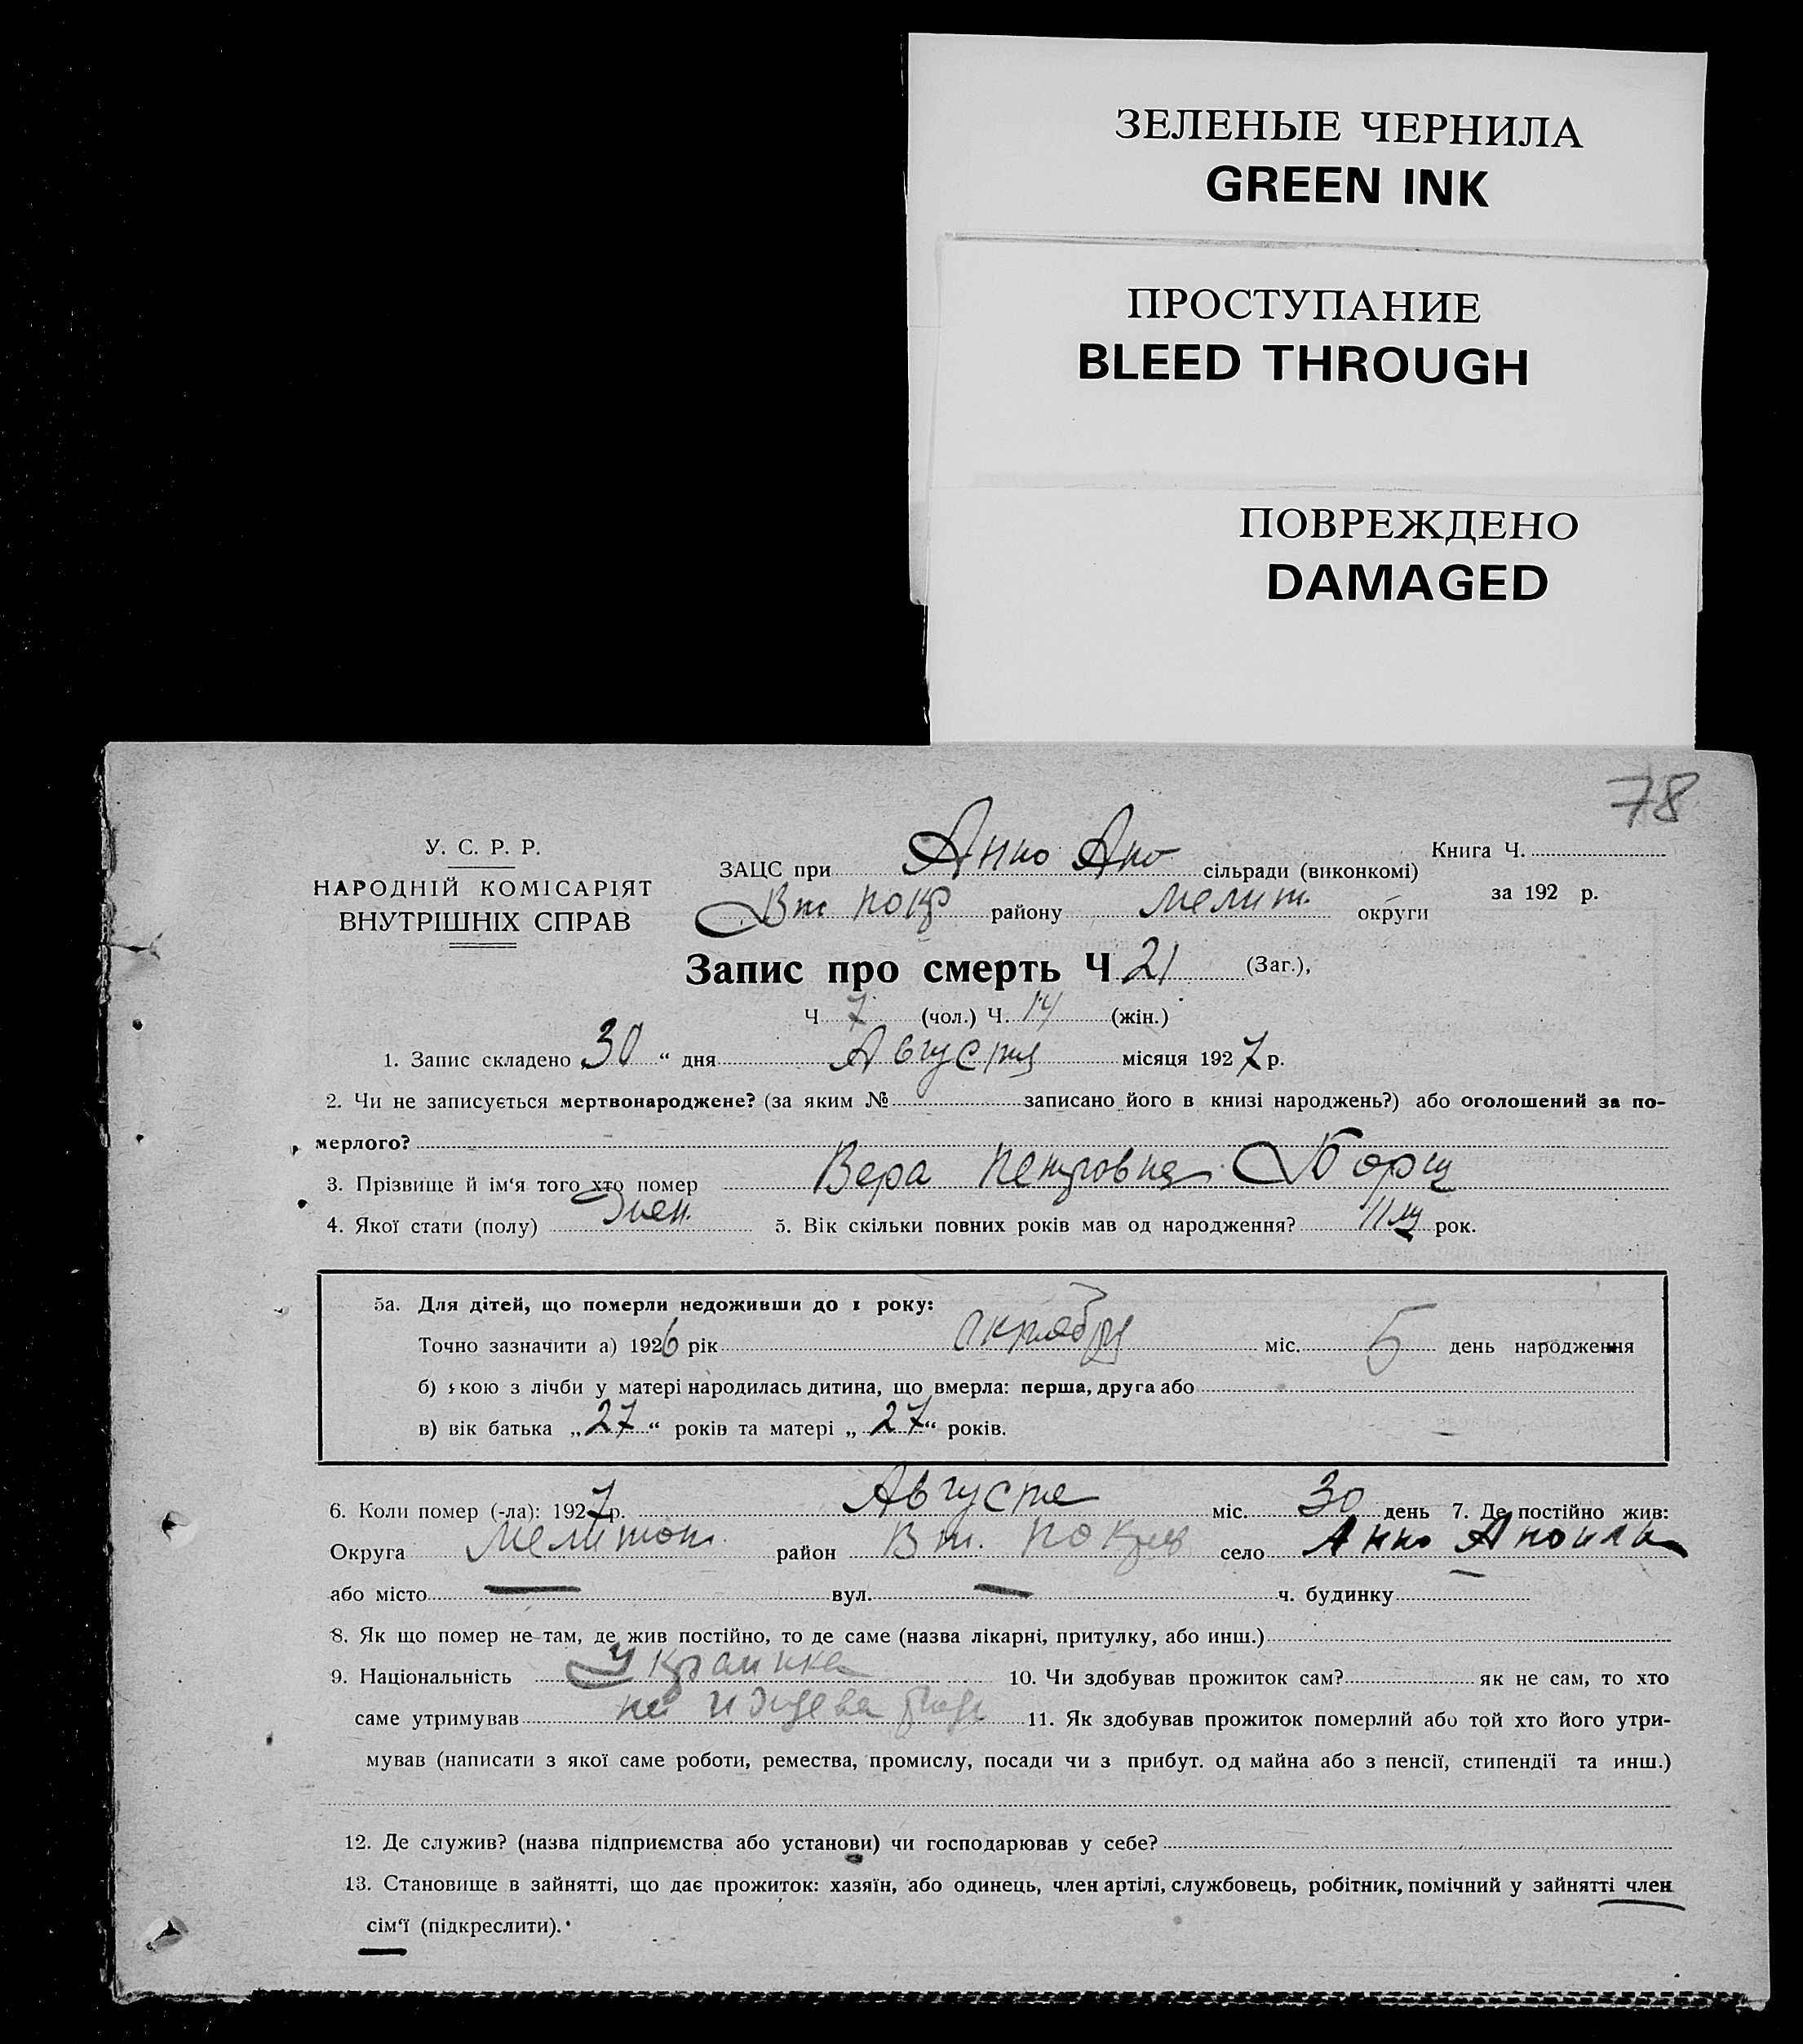 ЗЕЛЕНЫЕ ЧЕРНИЛА
GREEN INK
ПРОСТУПАНИЕ
BLEED THROUGH
ПОВРЕЖДЕНО
DAMAGED
78
У. С. Р. Р.
НАРОДНІЙ КОМІСАРІЯТ
ВНУТРІШНІХ СПРАВ
ЗАЦС при Анно Апо сільради (виконкомі)
Вт Покр району Мелит. округи
Книга Ч.
за 192 р.
Запис про смерть Ч 21 (Заг.),
Ч 7 (чол.) Ч. 14 (жін.)
1. Запис складено 30 “ дня Августа місяця 1927 р.
2. Чи не записується мертвонароджене? (за яким № записано його в книзі народжень?) або оголошений за по-
мерлого?
3. Прізвище й ім‘я того хто помер Вера Петровна Борщ
4. Якої стати (полу) Жен. 5. Вік скільки повних років мав од народження? 11 м рок.
5а. Для дітей, що померли недоживши до 1 року:
Точно зазначити а) 1926 рік Октября міс. 5 день народження
б) якою з лічби у матері народилась дитина, що вмерла: перша, друга або
в) вік батька „27“ років та матері „27“ років.
6. Коли помер (-ла): 1927 р. Августа міс. 30 день 7. Де постійно жив:
Округа Мелитоп. район Вт. Покров село Анно Аполи
або місто — вул. — ч. будинку
8. Як що помер не там, де жив постійно, то де саме (назва лікарні, притулку, або инш.)
9. Національність Украинка 10. Чи здобував прожиток сам? як не сам, то хто
саме утримував на иждевен 11. Як здобував прожиток померлий або той хто його утри-
мував (написати з якої саме роботи, ремества, промислу, посади чи з прибут. од майна або з пенсії, стипендії та инш.)
12. Де служив? (назва підприємства або установи) чи господарював у себе?
13. Становище в зайнятті, що дає прожиток: хазяїн, або одинець, член артілі, службовець, робітник, помічний у зайнятті член
сім‘ї (підкреслити).